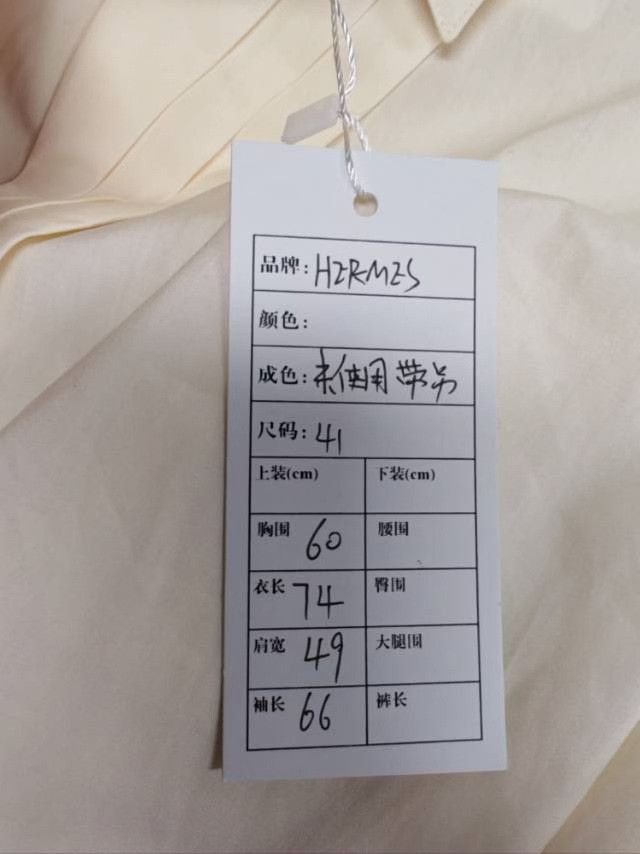 品牌：HERMES
颜色：
成色：未使用 带吊
尺码：41
上装(cm) 下装(cm)
胸围 60 腰围
衣长 74 臀围
肩宽 49 大腿围
袖长 66 裤长